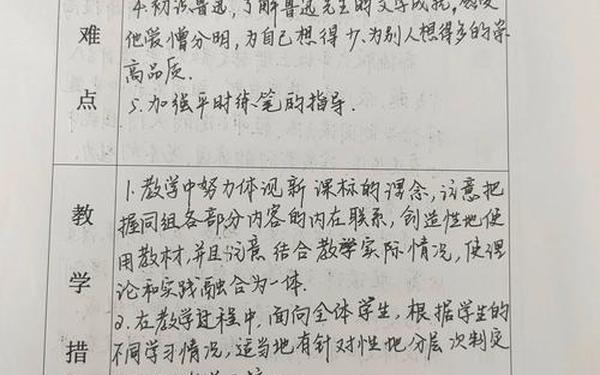 4.初识鲁迅,了解鲁迅先生的文学成就,感受
难 他爱憎分明,为自己想得少、为别人想得多的崇
高品质.
点 5.加强平时练笔的指导.
1.教学中努力体现新课标的理念,注意把
教 握同组各部分内容的内在联系,创造性地使
用教材,并且注意结合教学实际情况,使理
学 论和实践融合为一体.
2.在教学过程中,面向全体学生,根据学生的
措 不同学习情况,适当地有针对性地分层次制定